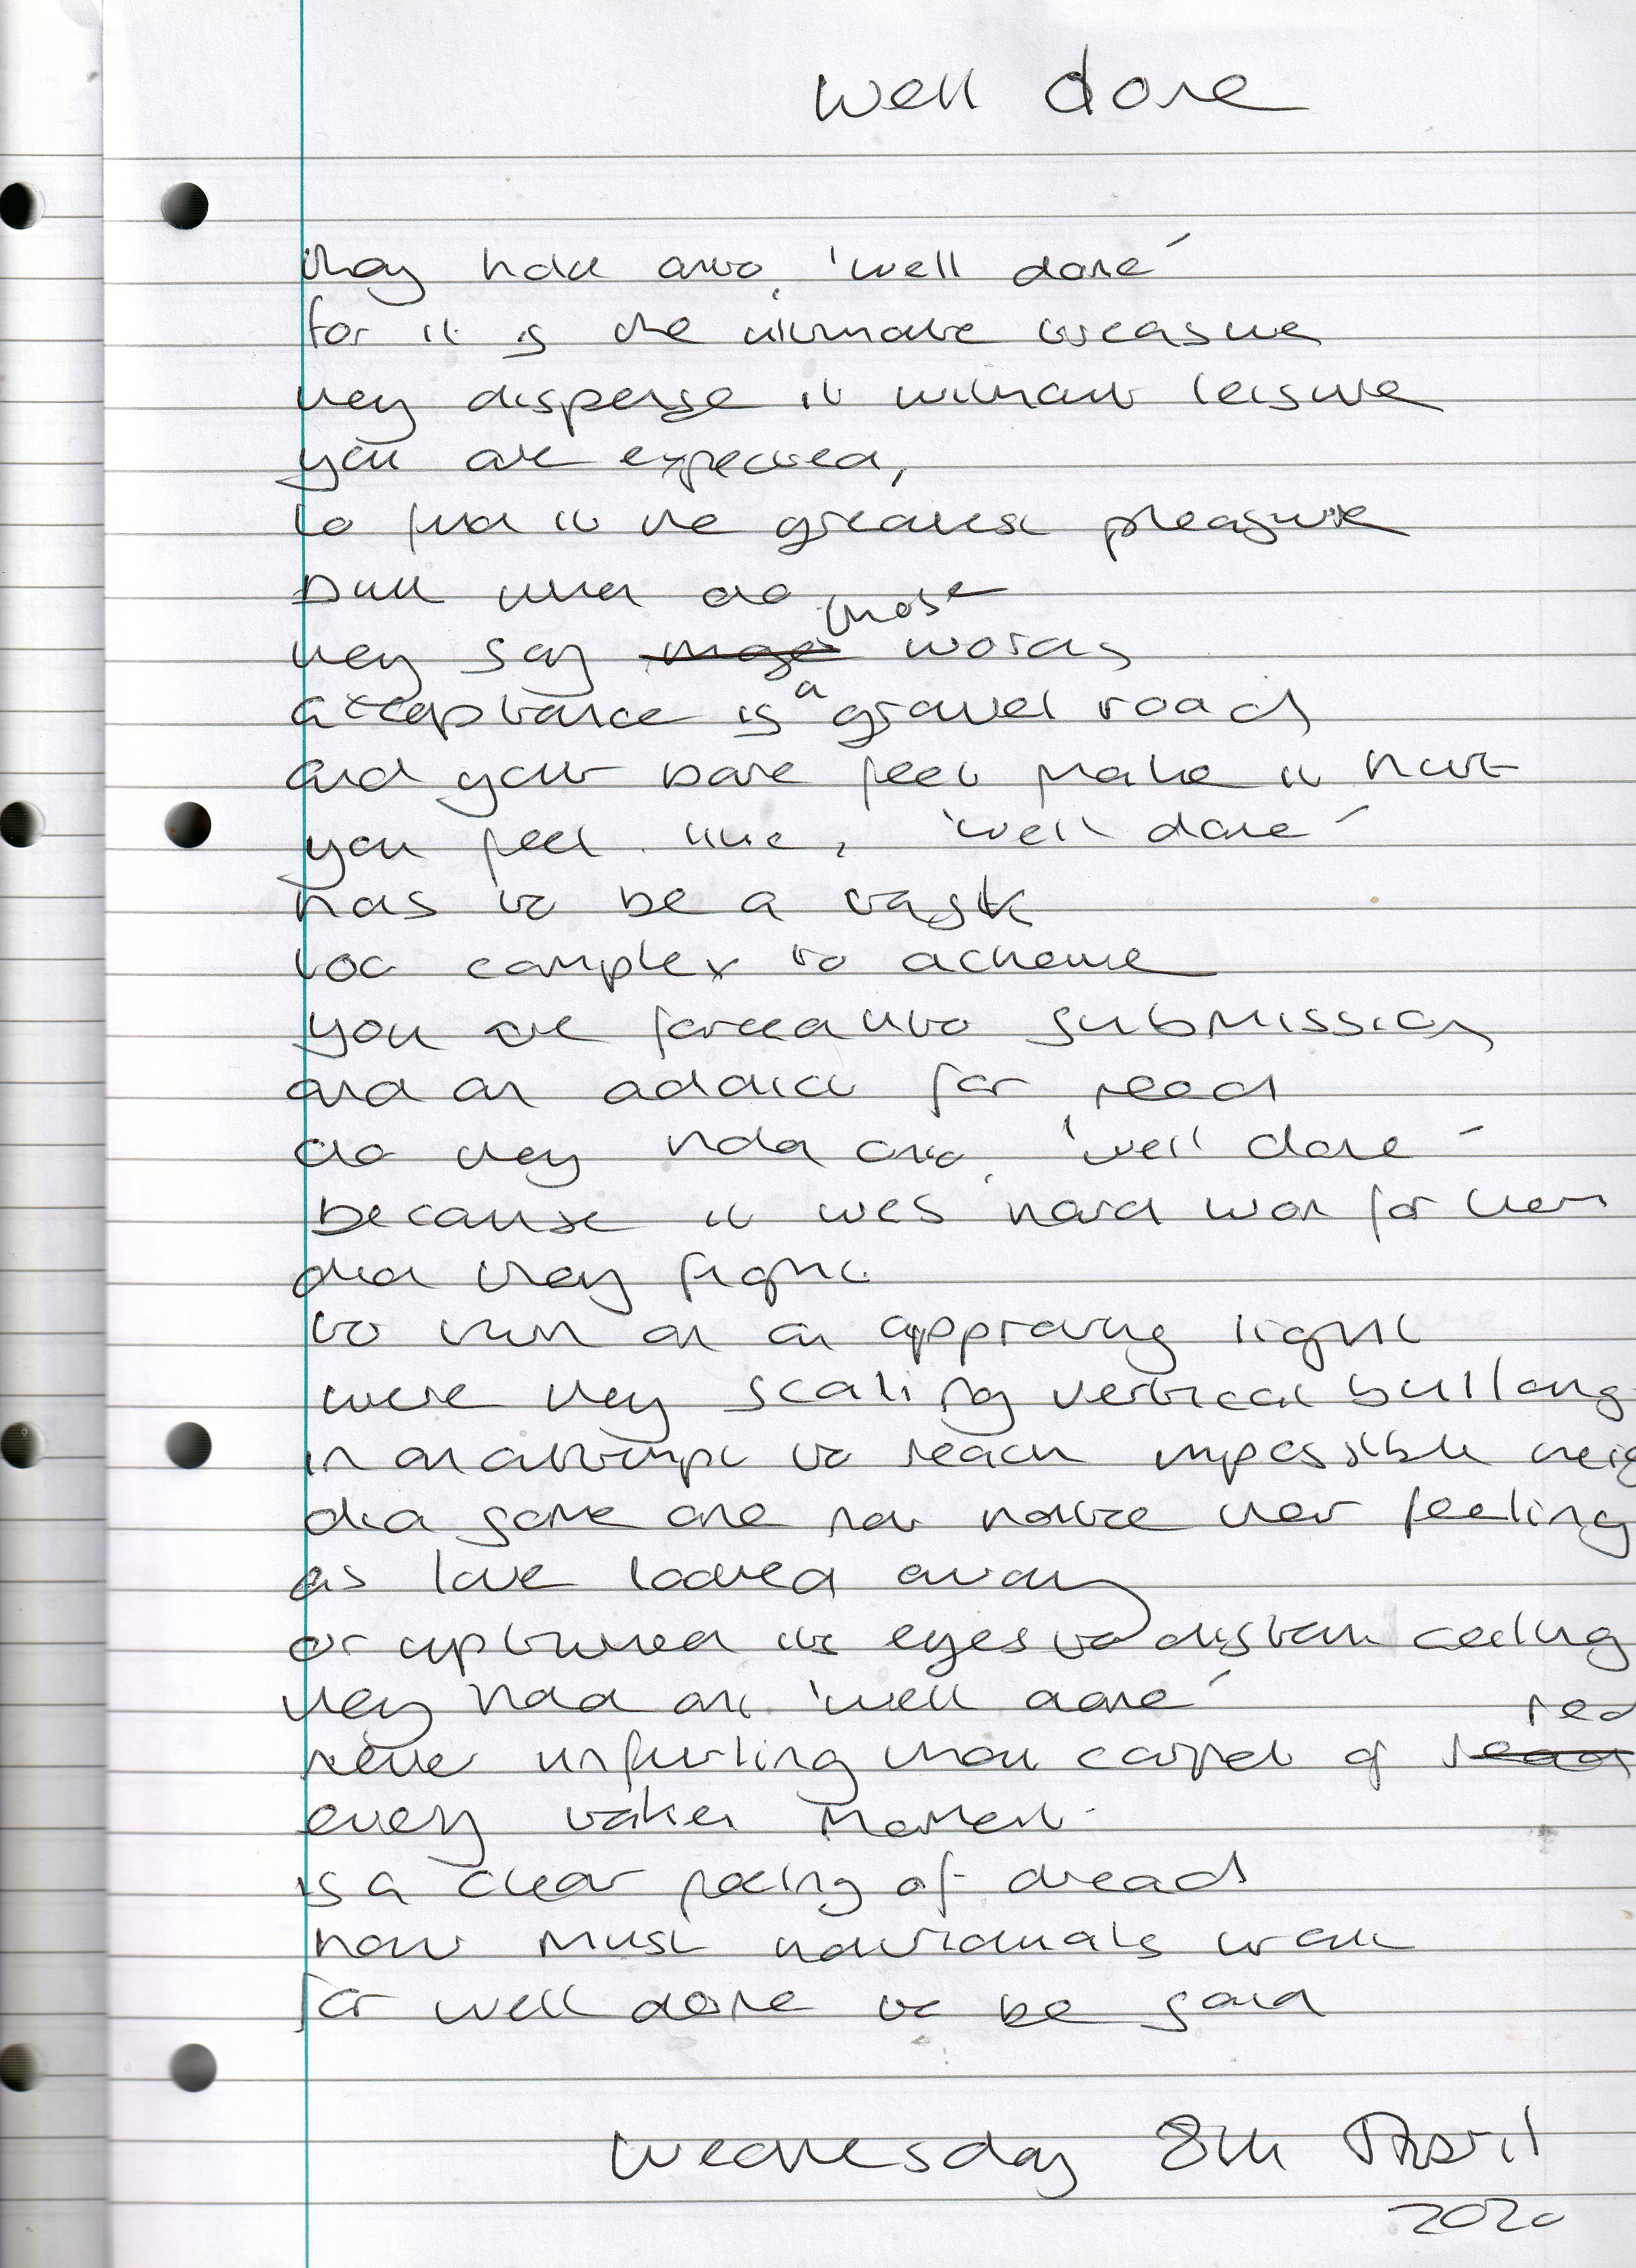 Well done
they hold onto, 'well done'
for it is the ultimate treasure
they disperse it without leisure
you are expected,
to find it the greatest pleasure
but when do
they say those words
acceptance is a gravel road
and your bare feet make it hurt
you feel like, 'well done'
has to be a task
too complex to achieve
you are forced into submission
and an addict for need
do they hold onto, 'well done'
because it was hard won for them
did they fight
to turn on an approving light
were they scaling vertical buildings
in an attempt to reach impossible heig
did some one not notice their feeling
as love looked away
or upturned its eyes to distant ceiling
they hold on, 'well done'
never unfurling that carpet of red
every taken moment
is a clear pacing of dread
how must individuals wait
for well done to be said
Wednesday 8th April
2020